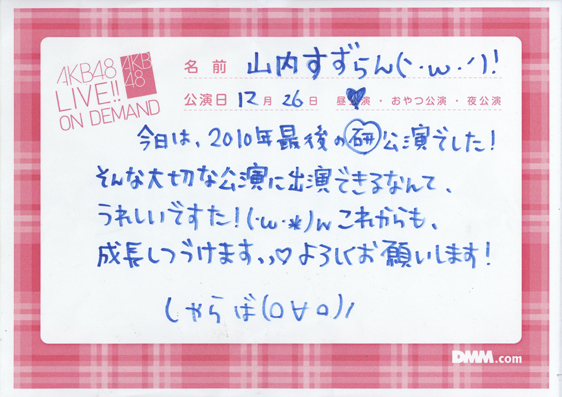 AKB48
LIVE!!
ON DEMAND
AKB
48
名前 山内すずらん(`･w･´)!
公演日 12月26日 昼♥演・おやつ公演・夜公演
今日は、2010年最後の研公演でした!
そんな大切な公演に出演できるなんて、
うれしいですた!(･w･*)w これからも、
成長しつづけますヽ、♡よろしくお願いします!
しゃらば(0∀0)ﾉ
DMM.com